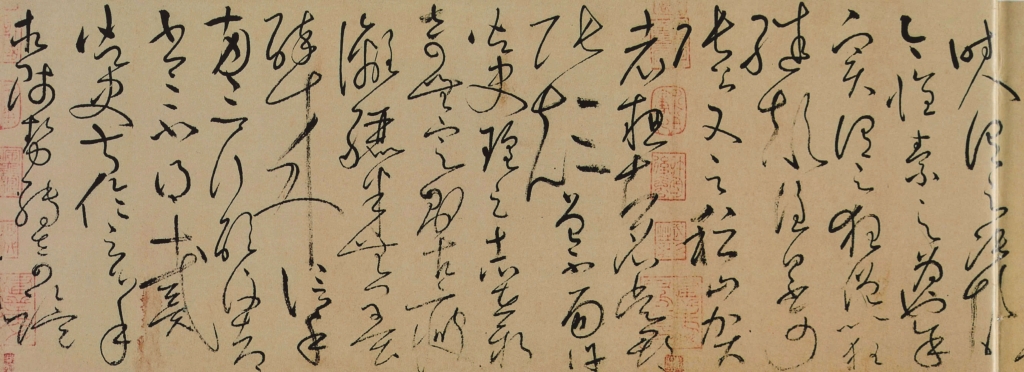 時人謂之張顛
今懷素之為也余
實謂之狂僧以狂
繼顛誰曰不可
張公又云稽山賀
老粗知名吳郡
張顛曾不面許
御史瑤云志在新
奇無定則古瘦
漓驪半無墨
醉來信手
兩三行醒後却
書書不得戴
御史叔倫云心手
相師勢轉奇詭